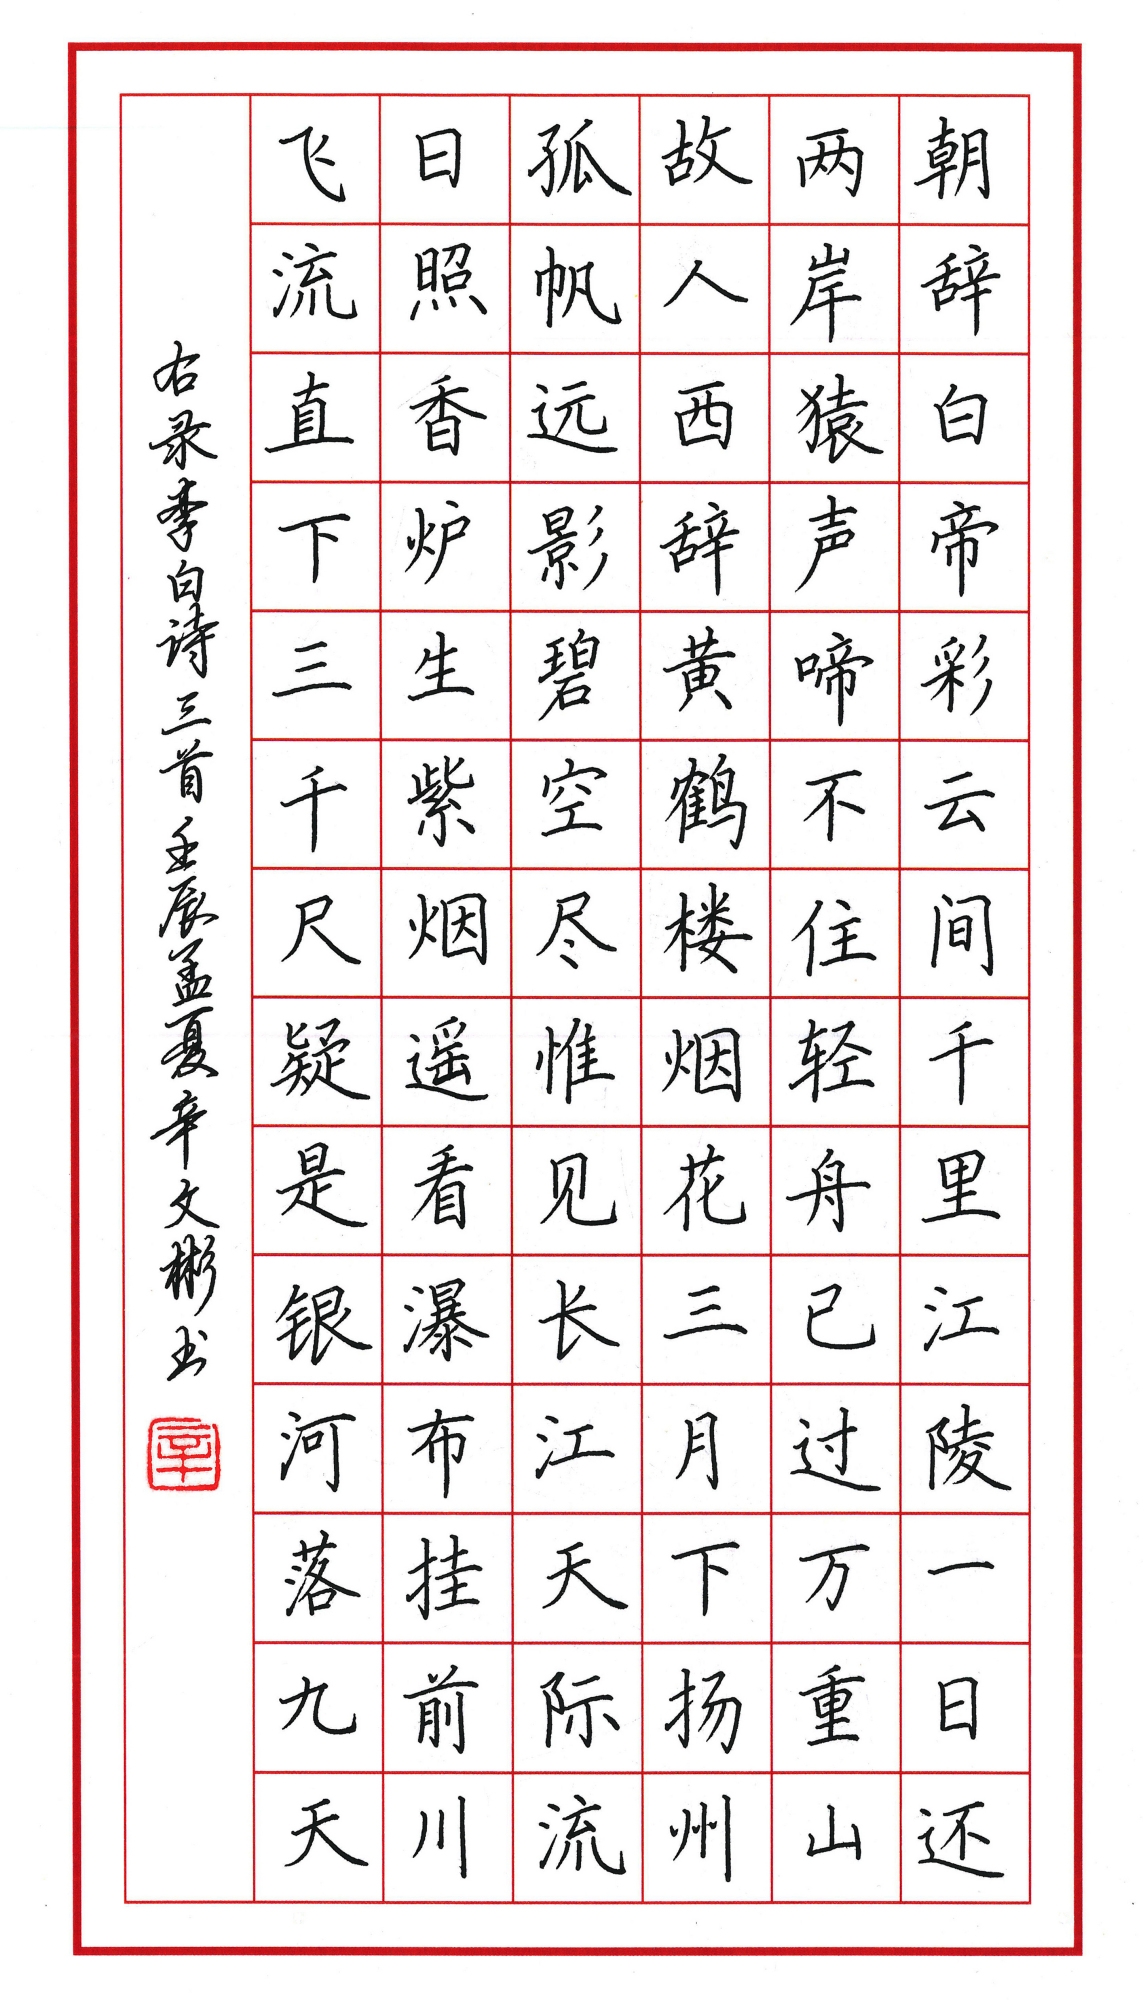 朝辞白帝彩云间千里江陵一日还
两岸猿声啼不住轻舟已过万重山
故人西辞黄鹤楼烟花三月下扬州
孤帆远影碧空尽惟见长江天际流
日照香炉生紫烟遥看瀑布挂前川
飞流直下三千尺疑是银河落九天
右录李白诗三首壬辰孟夏辛文彬书
辛